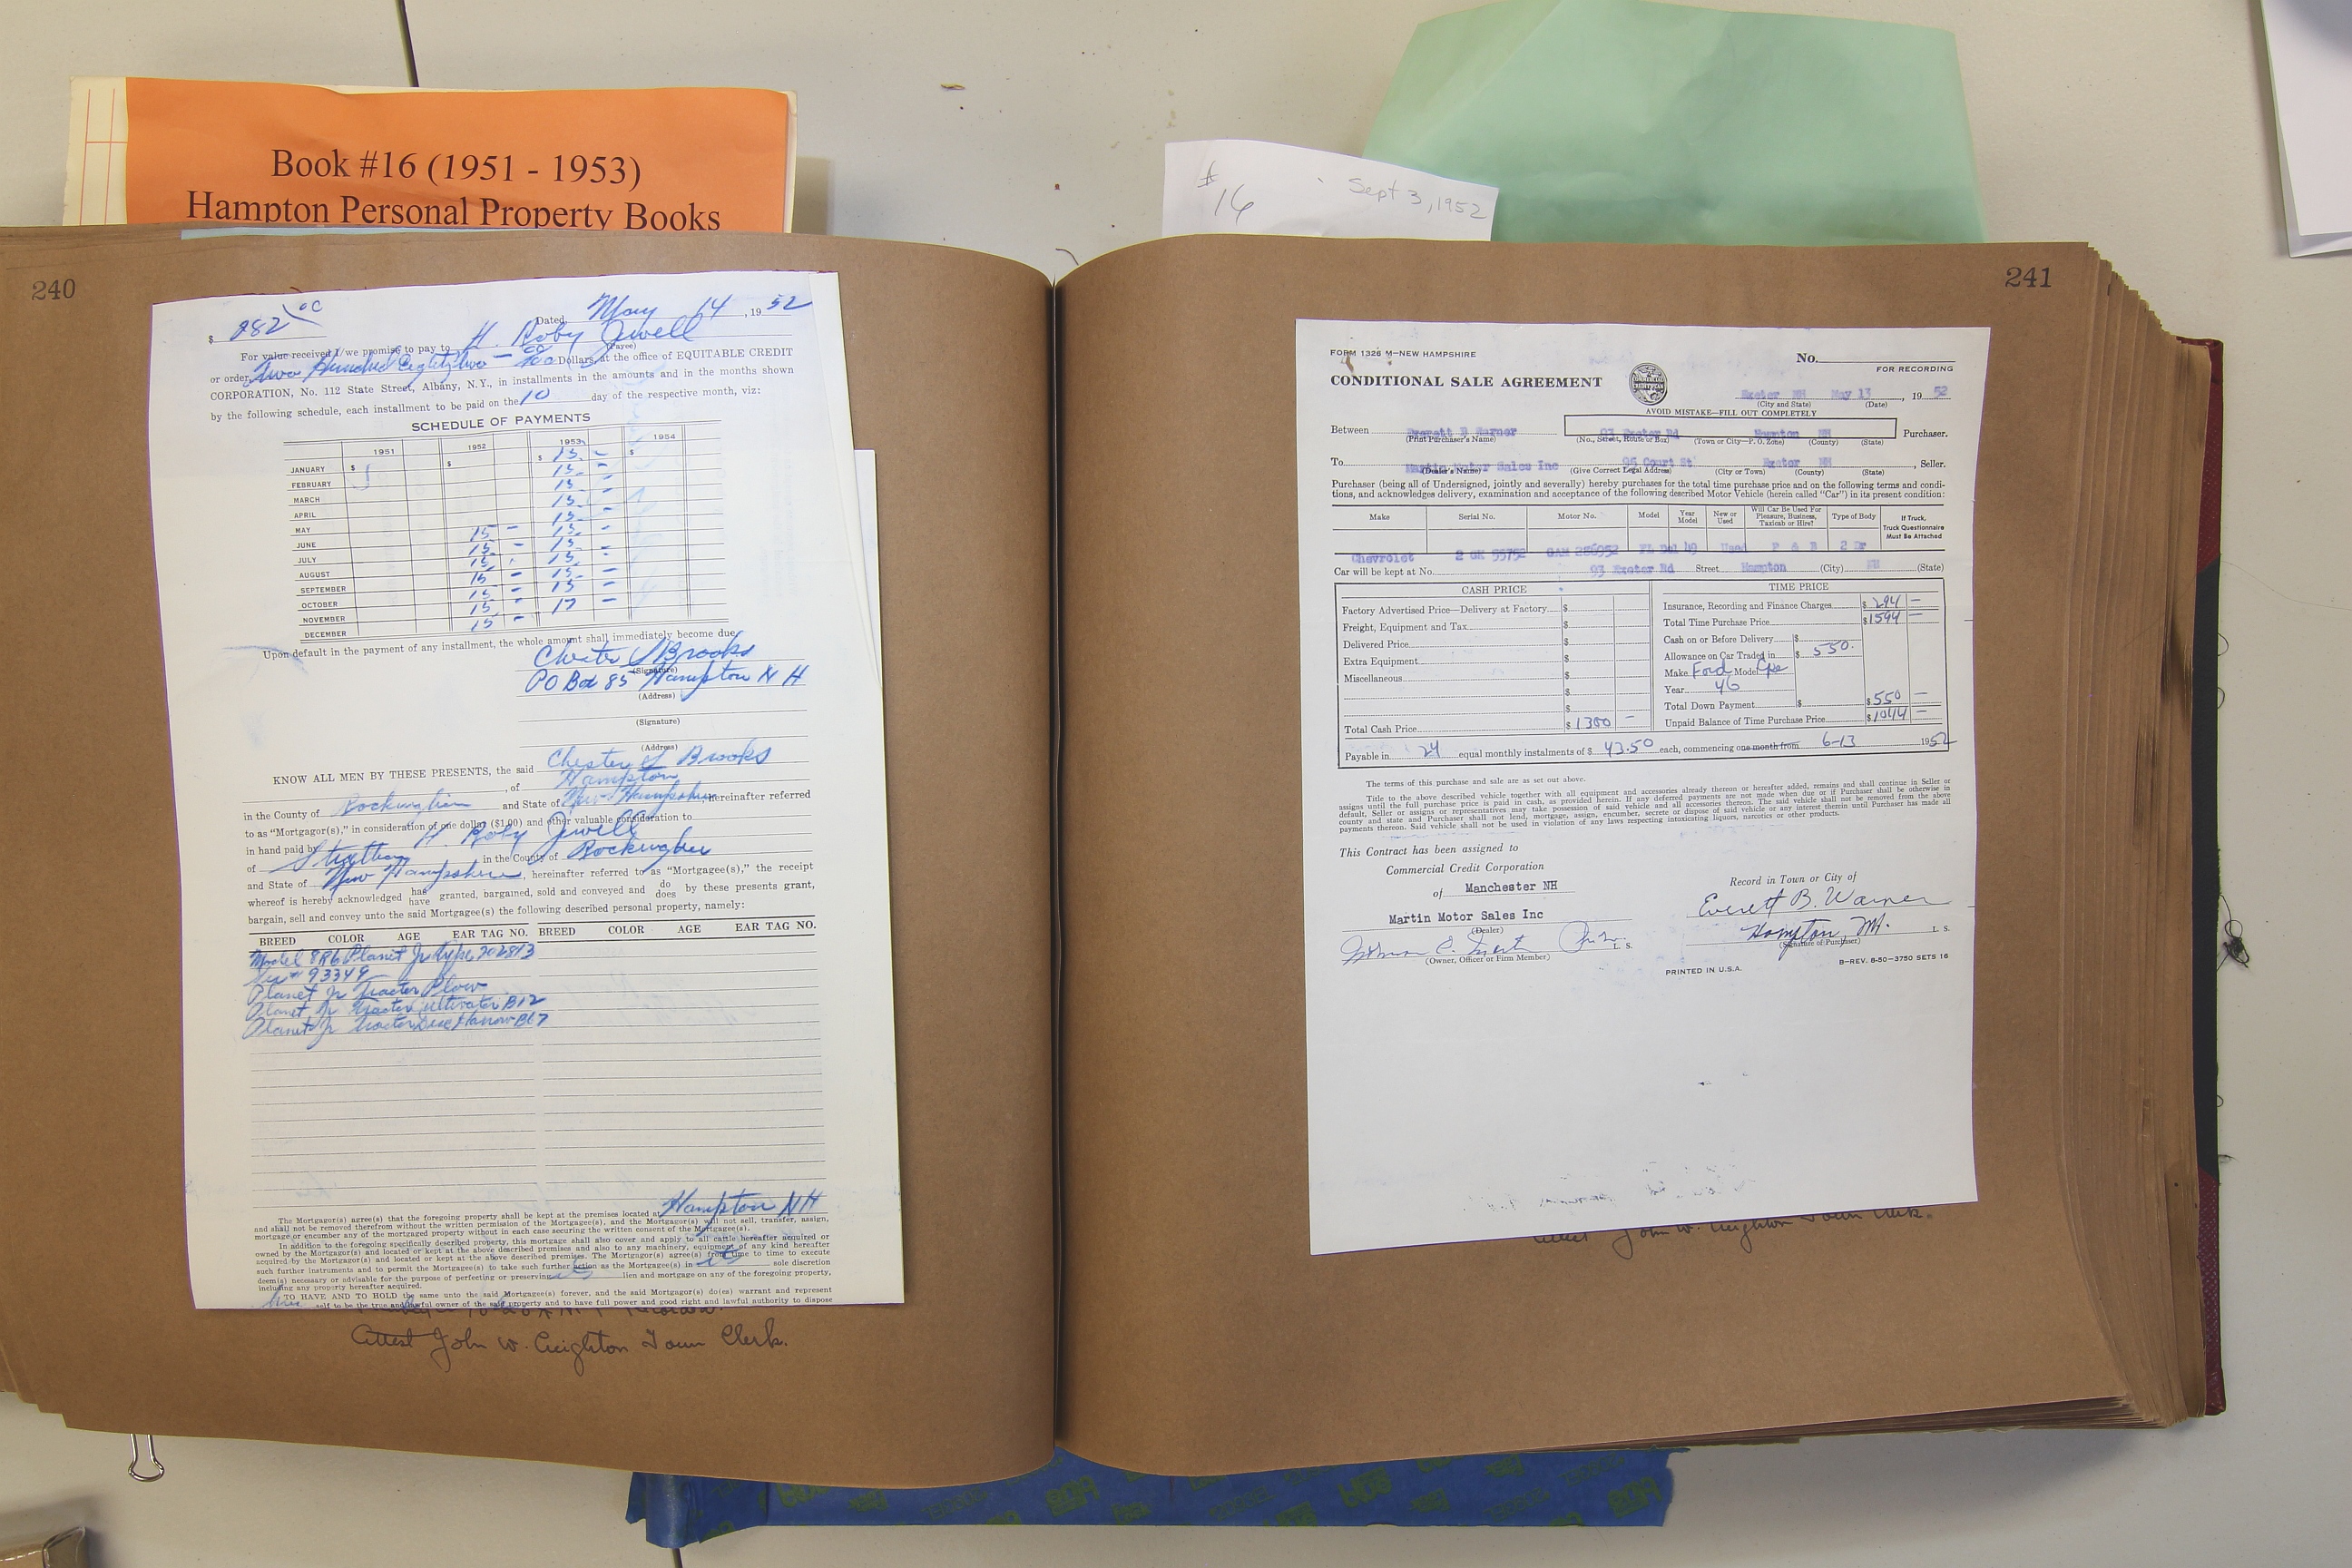 Book #16 (1951 - 1953)
Hampton Personal Property Books
#
16
Sept 3, 1952
240
$ 282 00
Dated May 14, 19 52
For value received I/we promise to pay to H. Roby Jewell
(Payee)
or order Two Hundred Eighty two — 00/100 Dollars, at the office of EQUITABLE CREDIT
CORPORATION, No. 112 State Street, Albany, N.Y., in installments in the amounts and in the months shown
by the following schedule, each installment to be paid on the 10 day of the respective month, viz:
SCHEDULE OF PAYMENTS
1951 1952 1953 1954
$ $ $ 15 - $
JANUARY 15 -
FEBRUARY 15 -
MARCH 15 -
APRIL 15 -
MAY 15 - 15 -
JUNE 15 - 15 -
JULY 15 - 15 -
AUGUST 15 - 15 -
SEPTEMBER 15 - 15 -
OCTOBER 15 - 17 -
NOVEMBER 15
DECEMBER
Upon default in the payment of any installment, the whole amount shall immediately become due.
Chester S Brooks
(Signature)
PO Box 85 Hampton N H
(Address)
(Signature)
(Address)
KNOW ALL MEN BY THESE PRESENTS, the said Chester S Brooks
, of Hampton
in the County of Rockingham and State of New Hampshire, hereinafter referred
to as "Mortgagor(s)," in consideration of one dollar ($1.00) and other valuable consideration to
in hand paid by H. Roby Jewell
of Stratham in the County of Rockingham
and State of New Hampshire, hereinafter referred to as "Mortgagee(s)," the receipt
whereof is hereby acknowledged has have granted, bargained, sold and conveyed and do does by these presents grant,
bargain, sell and convey unto the said Mortgagee(s) the following described personal property, namely:
BREED COLOR AGE EAR TAG NO. BREED COLOR AGE EAR TAG NO.
Model 8R6 Planet Jr Type 702813
Ser # 93349
Planet Jr Tractor Plow
Planet Jr Tractor Cultivator B12
Planet Jr Tractor Disc Harrow B67
The Mortgagor(s) agree(s) that the foregoing property shall be kept at the premises located at Hampton NH
and shall not be removed therefrom without the written permission of the Mortgagee(s), and the Mortgagor(s) will not sell, transfer, assign,
mortgage or encumber any of the mortgaged property without in each case securing the written consent of the Mortgagee(s).
In addition to the foregoing specifically described property, this mortgage shall also cover and apply to all cattle hereafter acquired or
owned by the Mortgagor(s) and located or kept at the above described premises and also to any machinery, equipment of any kind hereafter
acquired by the Mortgagor(s) and located or kept at the above described premises. The Mortgagor(s) agree(s) from time to time to execute
such further instruments and to permit the Mortgagee(s) to take such further action as the Mortgagee(s) in its sole discretion
deem(s) necessary or advisable for the purpose of perfecting or preserving its lien and mortgage on any of the foregoing property,
including any property hereafter acquired.
TO HAVE AND TO HOLD the same unto the said Mortgagee(s) forever, and the said Mortgagor(s) do(es) warrant and represent
self to be the true and lawful owner of the said property and to have full power and good right and lawful authority to dispose
Attest John W. Creighton Town Clerk.
241
FORM 1326 M—NEW HAMPSHIRE
No.
FOR RECORDING
CONDITIONAL SALE AGREEMENT
Exeter NH May 13, 19 52
(City and State) (Date)
AVOID MISTAKE—FILL OUT COMPLETELY
Between Everett B Warner 93 Exeter Rd Hampton NH Purchaser.
(Print Purchaser's Name) (No., Street, Route or Box) (Town or City—P.O. Zone) (County) (State)
To Martin Motor Sales Inc 95 Court St Exeter NH, Seller.
(Dealer's Name) (Give Correct Legal Address) (City or Town) (County) (State)
Purchaser (being all of Undersigned, jointly and severally) hereby purchases for the total time purchase price and on the following terms and condi-
tions, and acknowledges delivery, examination and acceptance of the following described Motor Vehicle (herein called "Car") in its present condition:
Make Serial No. Motor No. Model Year Model New or Used Will Car Be Used For Pleasure, Business, Taxicab or Hire? Type of Body If Truck, Truck Questionnaire Must Be Attached
Chevrolet 2 GK 55752 GAM 286952 Fl Del 49 Used P & B 2 Dr
Car will be kept at No. 93 Exeter Rd Street Hampton (City) NH (State)
CASH PRICE TIME PRICE
Factory Advertised Price—Delivery at Factory $
Freight, Equipment and Tax $
Delivered Price $
Extra Equipment $
Miscellaneous $
$
$
Total Cash Price $ 1300 -
Insurance, Recording and Finance Charges $ 294 -
Total Time Purchase Price $ 1594 -
Cash on or Before Delivery $
Allowance on Car Traded in $ 550.
Make Ford Model Cpe
Year 46
Total Down Payment $ $ 550 -
Unpaid Balance of Time Purchase Price $ 1044 -
Payable in 24 equal monthly instalments of $ 43.50 each, commencing one month from 6-13 1952
The terms of this purchase and sale are as set out above.
Title to the above described vehicle together with all equipment and accessories already thereon or hereafter added, remains and shall continue in Seller or
assigns until the full purchase price is paid in cash, as provided herein. If any deferred payments are not made when due or if Purchaser shall be otherwise in
default, Seller or assigns may take possession of said vehicle and all accessories thereon. The said vehicle shall not be removed from the above
county and state and Purchaser shall not lend, mortgage, assign, encumber, secrete or dispose of said vehicle or any interest therein until Purchaser has made all
payments thereon. Said vehicle shall not be used in violation of any laws respecting intoxicating liquors, narcotics or other products.
This Contract has been assigned to
Commercial Credit Corporation
of Manchester NH
Martin Motor Sales Inc
(Dealer)
L. S.
(Owner, Officer or Firm Member)
Record in Town or City of
Everett B. Warner
Hampton, NH.
L. S.
(Signature of Purchaser)
PRINTED IN U.S.A.
B—REV. 8-50—3750 SETS 16
Attest John W. Creighton Town Clerk.